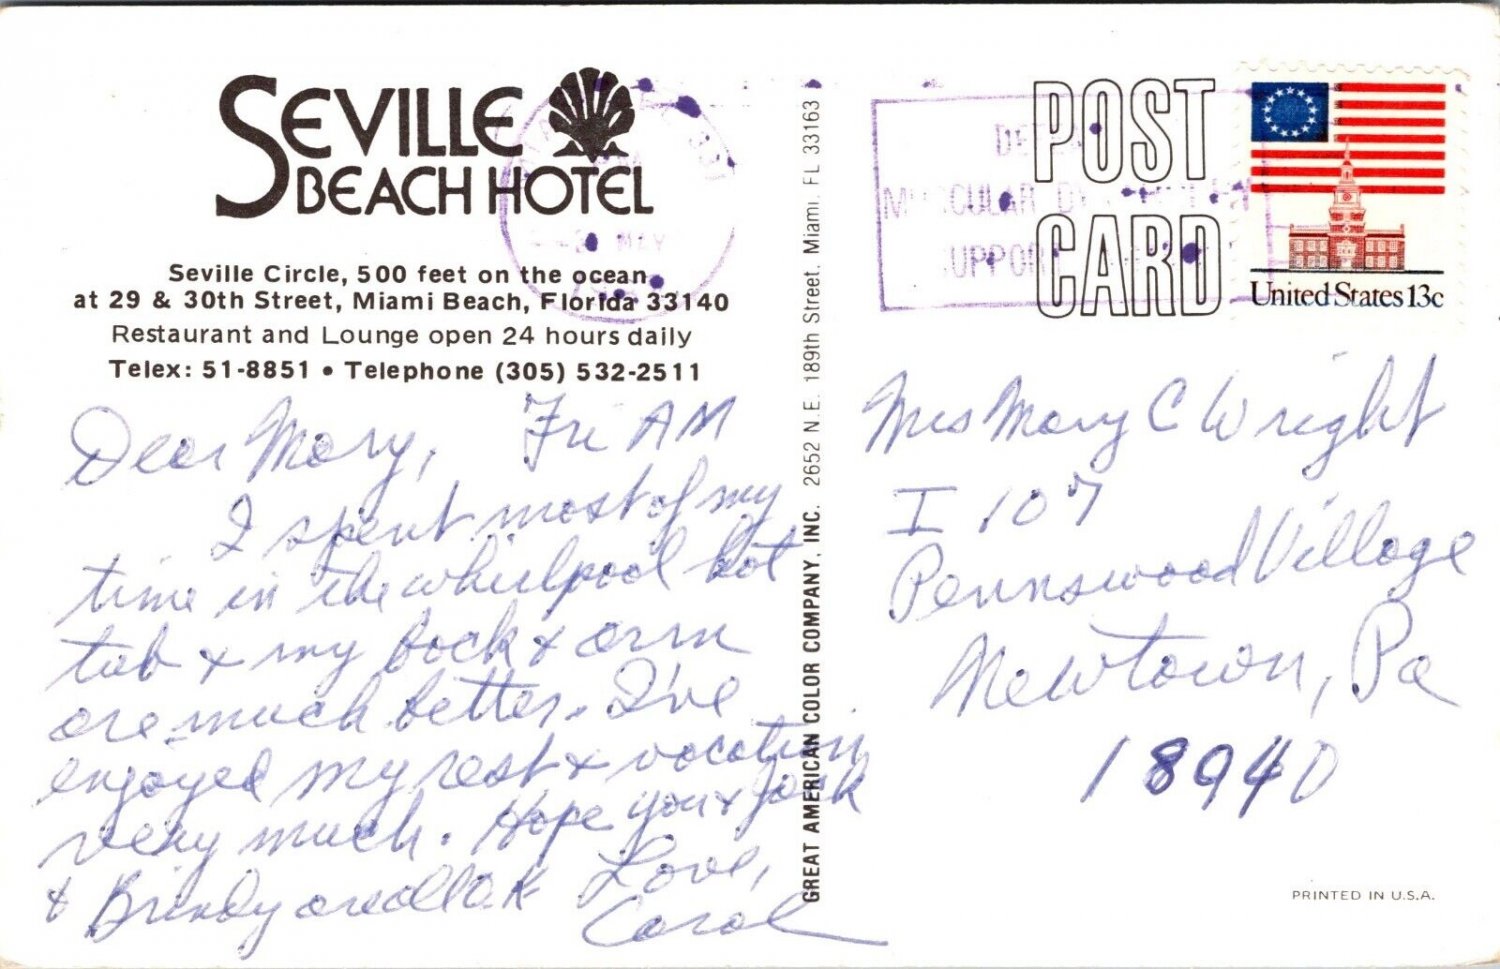 SEVILLE
BEACH HOTEL
Seville Circle, 500 feet on the ocean
at 29 & 30th Street, Miami Beach, Florida 33140
Restaurant and Lounge open 24 hours daily
Telex: 51-8851 • Telephone (305) 532-2511
Dear Mary, Fri AM
I spent most of my
time in the whirlpool hot
tub & my back & arm
are much better. I've
enjoyed my rest & vacation
very much. Hope you & Jack
& Brindy are all O.K
Love,
Carol
GREAT AMERICAN COLOR COMPANY, INC. 2652 N.E. 189th Street, Miami, FL 33163
POST
CARD
MUSCULAR
MAY
United States 13c
Mrs Mary C Wright
I 107
Pennswood Village
Newtown, Pa
18940
PRINTED IN U.S.A.